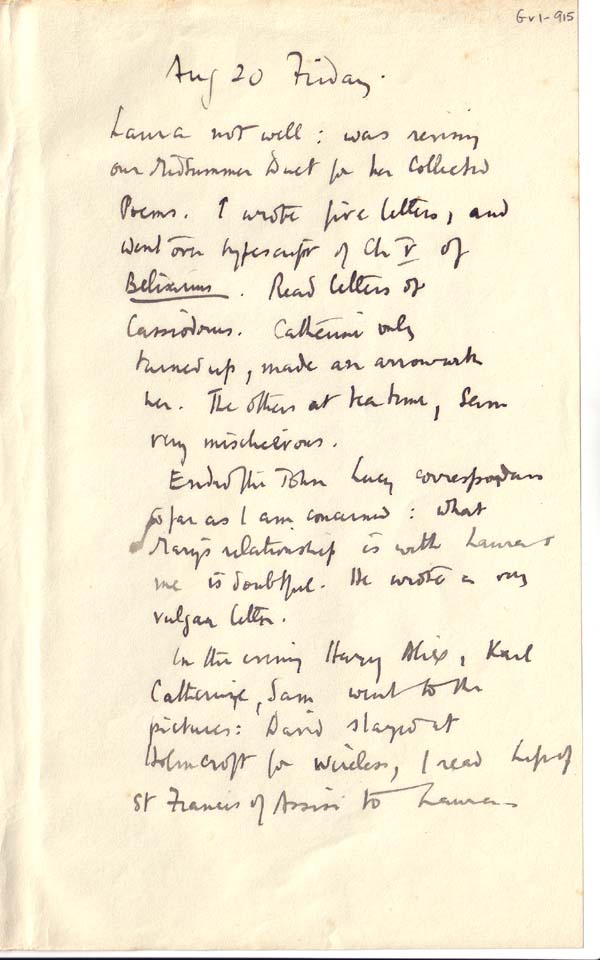 Gv1-915
Aug 20 Friday.
Laura not well: was revising
our Midsummer Duet for her Collected
Poems. I wrote five letters, and
went over typescript of Ch V of
Belisarius. Read letters of
Cassiodorus. Catherine only
turned up, made an arrowwith
her. The others at tea time, Sam
very mischievous.
Ended the John Lucy correspondence
so far as I am concerned: what
Mary's relationship is with Laura &
me is doubtful. He wrote a very
vulgar letter.
In the evening Harry Alix, Karl
Catherine, Sam went to the
pictures: David stayed at
Holmcroft for wireless, I read Life of
St Francis of Assisi to Laura